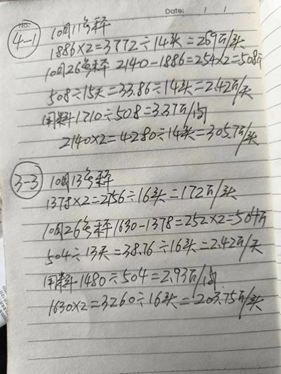 Date: / /
4-1
10月11号称
1886×2=3772÷14头=269斤/头
10月26号称 2140-1886=254×2=508斤
508÷15天=33.86÷14头=2.42斤/天
用料1710÷508=3.37斤/肉
2140×2=4280÷14头=305.7斤/头
3-3
10月13号称
1378×2=2756÷16头=172斤/头
10月26号称1630-1378=252×2=504斤
504÷13天=38.76÷16头=2.42斤/天
用料1480÷504=2.93斤/肉
1630×2=3260÷16头=203.75斤/头